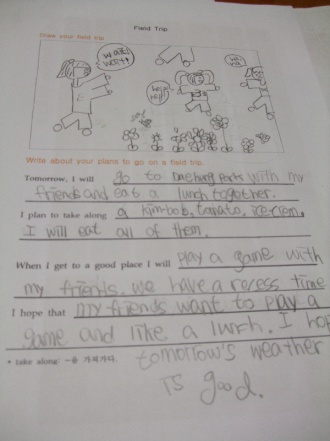 Field Trip
Draw your field trip
wait
wait
Write about your plans to go on a field trip.
Tomorrow, I will go to parks with my
friends and eat a lunch together.
I plan to take along a kimbob, tomato,
I will eat all of them.
When I get to a good place I will play a game with
my friends. we have a recess time
I hope that my friends want to play a
game and like a lunch. I hop
* take along
tomorrow's weather
Is good.